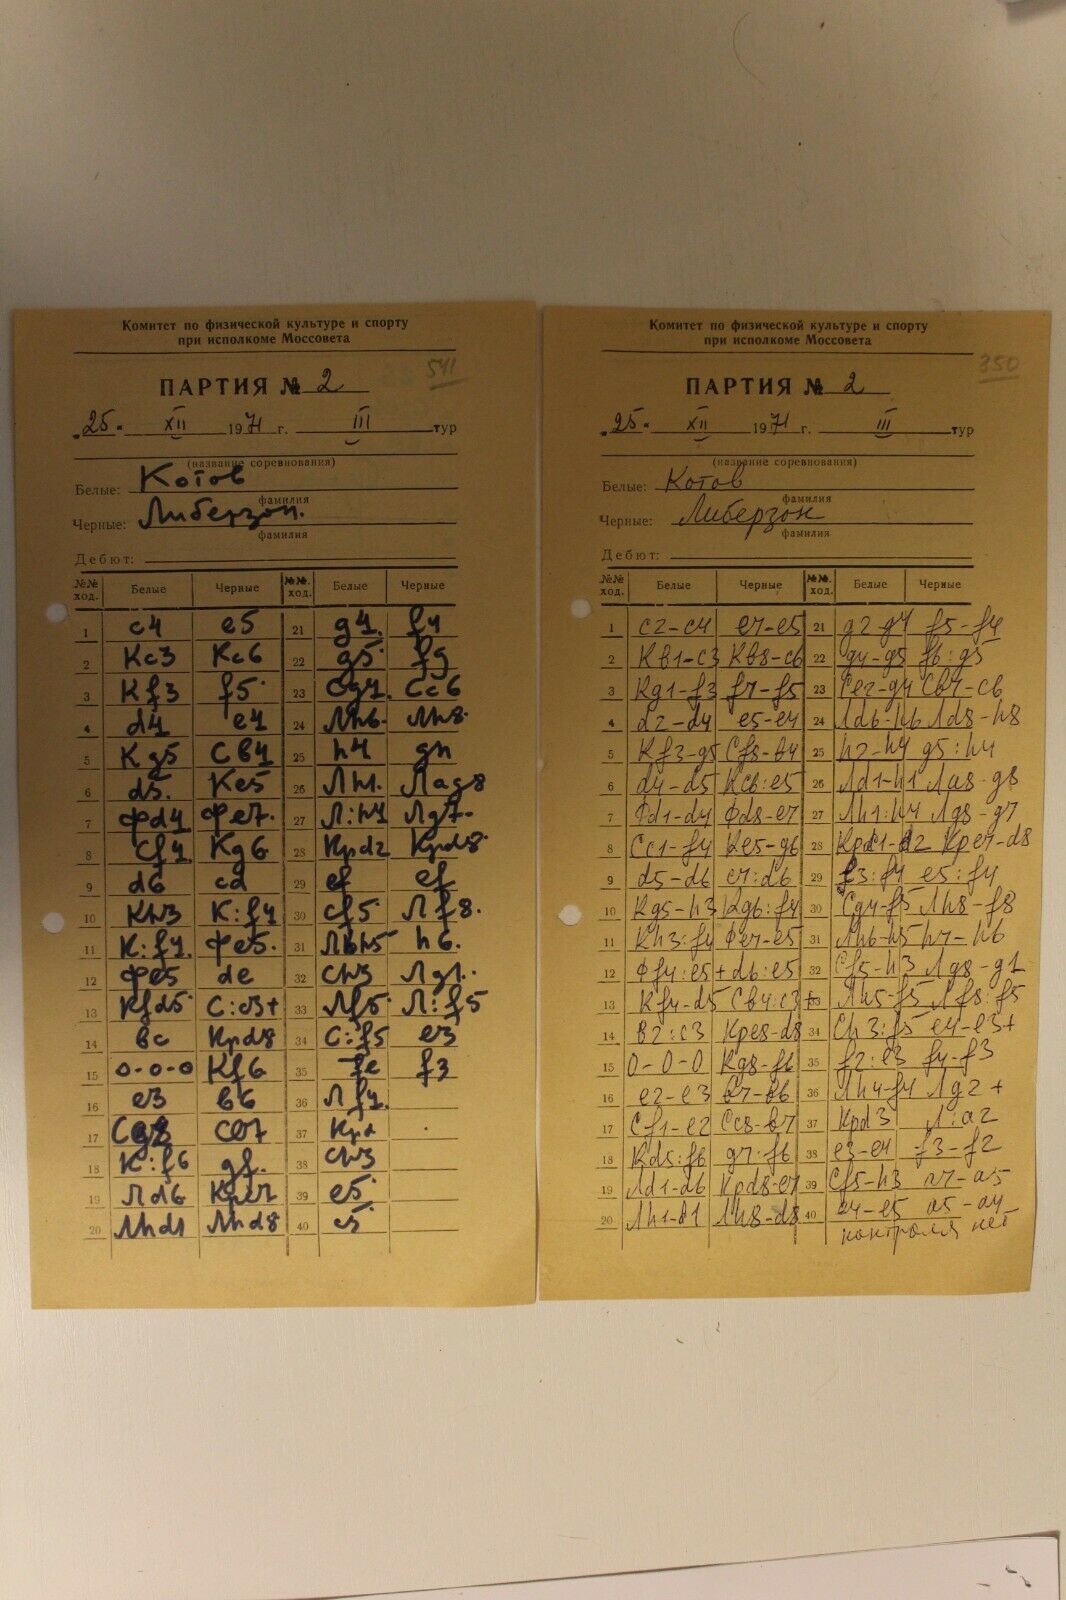 Комитет по физической культуре и спорту
при исполкоме Моссовета
541
ПАРТИЯ № 2
„25" XII 1971 г. III тур
(название соревнования)
Белые: Котов
фамилия
Черные: Либерзон.
фамилия
Дебют:
№№ ход. Белые Черные №№ ход. Белые Черные
1 c4 e5 21 g4. f4
2 Кc3 Кc6 22 g5 fg
3 Кf3 f5 23 Сg4. Сc6
4 d4 e4 24 Лh6 Лh8.
5 Кg5 Сb4 25 h4 gh
6 d5. Кe5 26 Лh1. Лag8
7 Фd4 Фe7. 27 Л:h4 Лg7
8 Сf4 Кg6 28 Крd2 Крd8
9 d6 cd 29 ef ef
10 Кh3 К:f4 30 Сf5 Лf8.
11 К:f4. Фe5. 31 Лhh5 h6.
12 Фe5 de 32 Сh3 Лg1.
13 Кfd5 С:c3+ 33 Лf5 Л:f5
14 bc Крd8 34 С:f5 e3
15 0-0-0 Кf6 35 fe f3
16 e3 b6 36 Лf4.
17 Сb7 37
18 К:f6 gf. 38 Сh3
19 Лd6 Крe7 39 e5
20 Лhd1 Лhd8 40
Комитет по физической культуре и спорту
при исполкоме Моссовета
350
ПАРТИЯ № 2
„25" XII 1971 г. III тур
(название соревнования)
Белые: Котов
фамилия
Черные: Либерзон
фамилия
Дебют:
№№ ход. Белые Черные №№ ход. Белые Черные
1 c2-c4 e7-e5 21 g2-g4 f5-f4
2 Кb1-c3 Кb8-c6 22 g4-g5 f6:g5
3 Кg1-f3 f7-f5 23 Сe2-g4 Сb7-c6
4 d2-d4 e5-e4 24 Лd6-h6 Лd8-h8
5 Кf3-g5 Сf8-b4 25 h2-h4 g5:h4
6 d4-d5 Кc6:e5 26 Лd1-h1 Лa8-g8
7 Фd1-d4 Фd8-e7 27 Лh1:h4 Лg8-g7
8 Сc1-f4 Кe5-g6 28 Крc1-d2 Крe7-d8
9 d5-d6 c7:d6 29 e3:f4 e5:f4
10 Кg5-h3 Кg6:f4 30 Сg4-f5 Лh8-f8
11 Кh3:f4 Фe7-e5 31 Лh6-h5 h7-h6
12 Фf4:e5+ d6:e5 32 Сf5-h3 Лg8-g1
13 Кf4-d5 Сb4:c3+ 33 Лh5-f5 Лf8:f5
14 b2:c3 Крe8-d8 34 Сh3:f5 e4-e3+
15 0-0-0 Кg8-f6 35 f2:e3 f4-f3
16 e2-e3 b7-b6 36 Лh4-f4 Лg2+
17 Сf1-e2 Сc8-b7 37 Крd3 Л:a2
18 Кd5:f6 g7:f6 38 e3-e4 f3-f2
19 Лd1-d6 Крd8-e7 39 Сf5-h3 a7-a5
20 Лh1-d1 Лh8-d8 40 e4-e5 a5-a4
контроля нет